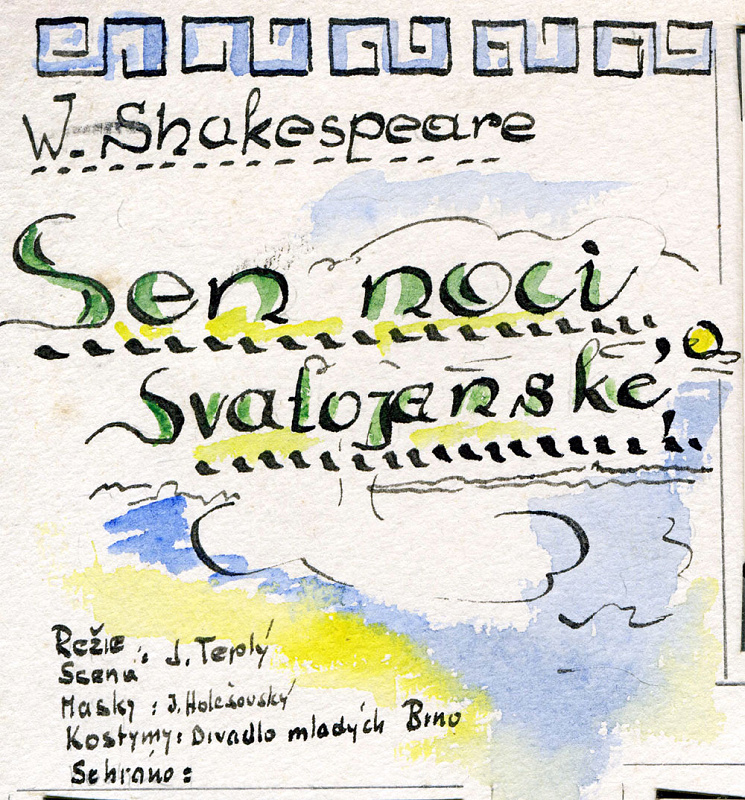 W. Shakespeare
Sen noci
Svatojanské
Režie
Scena : J. Teplý
Masky : J. Holešovský
Kostymy: Divadlo mladých Brno
Sehráno :